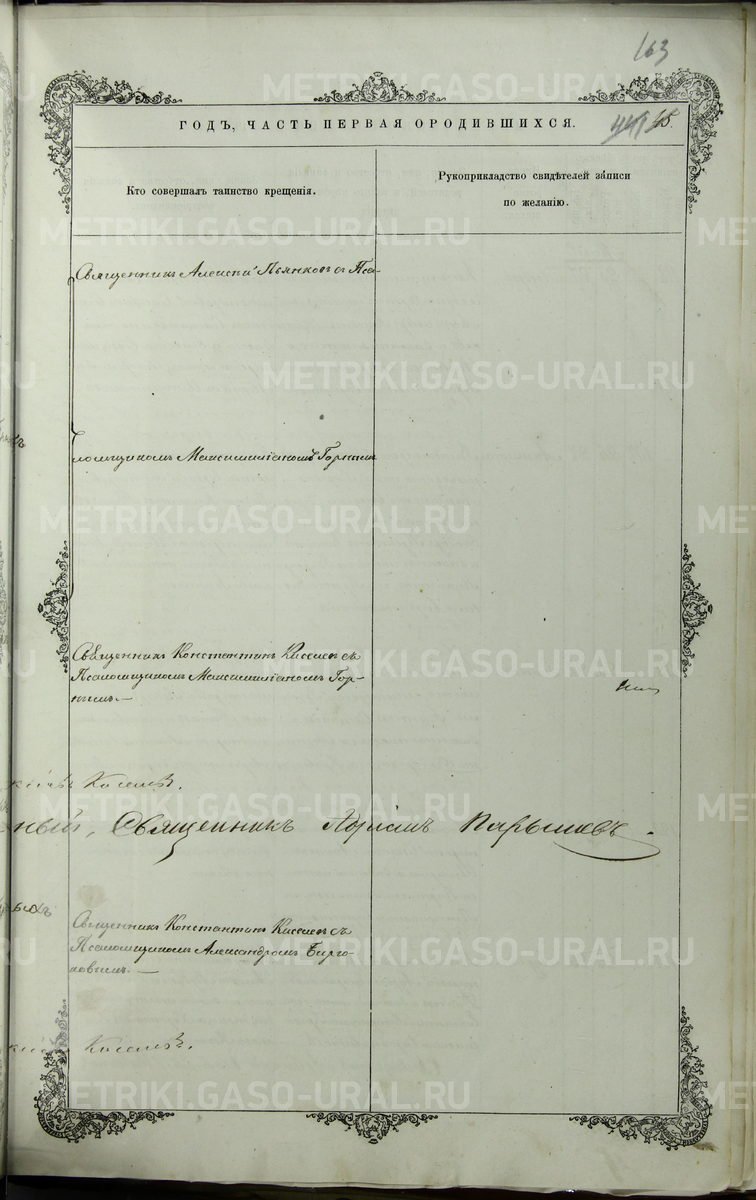 163
ГОДЪ, ЧАСТЬ ПЕРВАЯ О РОДИВШИХСЯ.
Кто совершалъ таинство крещенія.
Рукоприкладство свидѣтелей записи
по желанію.
Священникъ Алексѣй Пьянковъ съ Пса-
ломщикомъ Максимиліаномъ Горнымъ
Священникъ Константинъ Киселевъ съ
Псаломщикомъ Максимиліаномъ Гор-
нымъ. —
Киселевъ.
Священникъ
Священникъ Константинъ Киселевъ съ
Псаломщикомъ Александромъ
Киселевъ.
METRIKI.GASO-URAL.RU